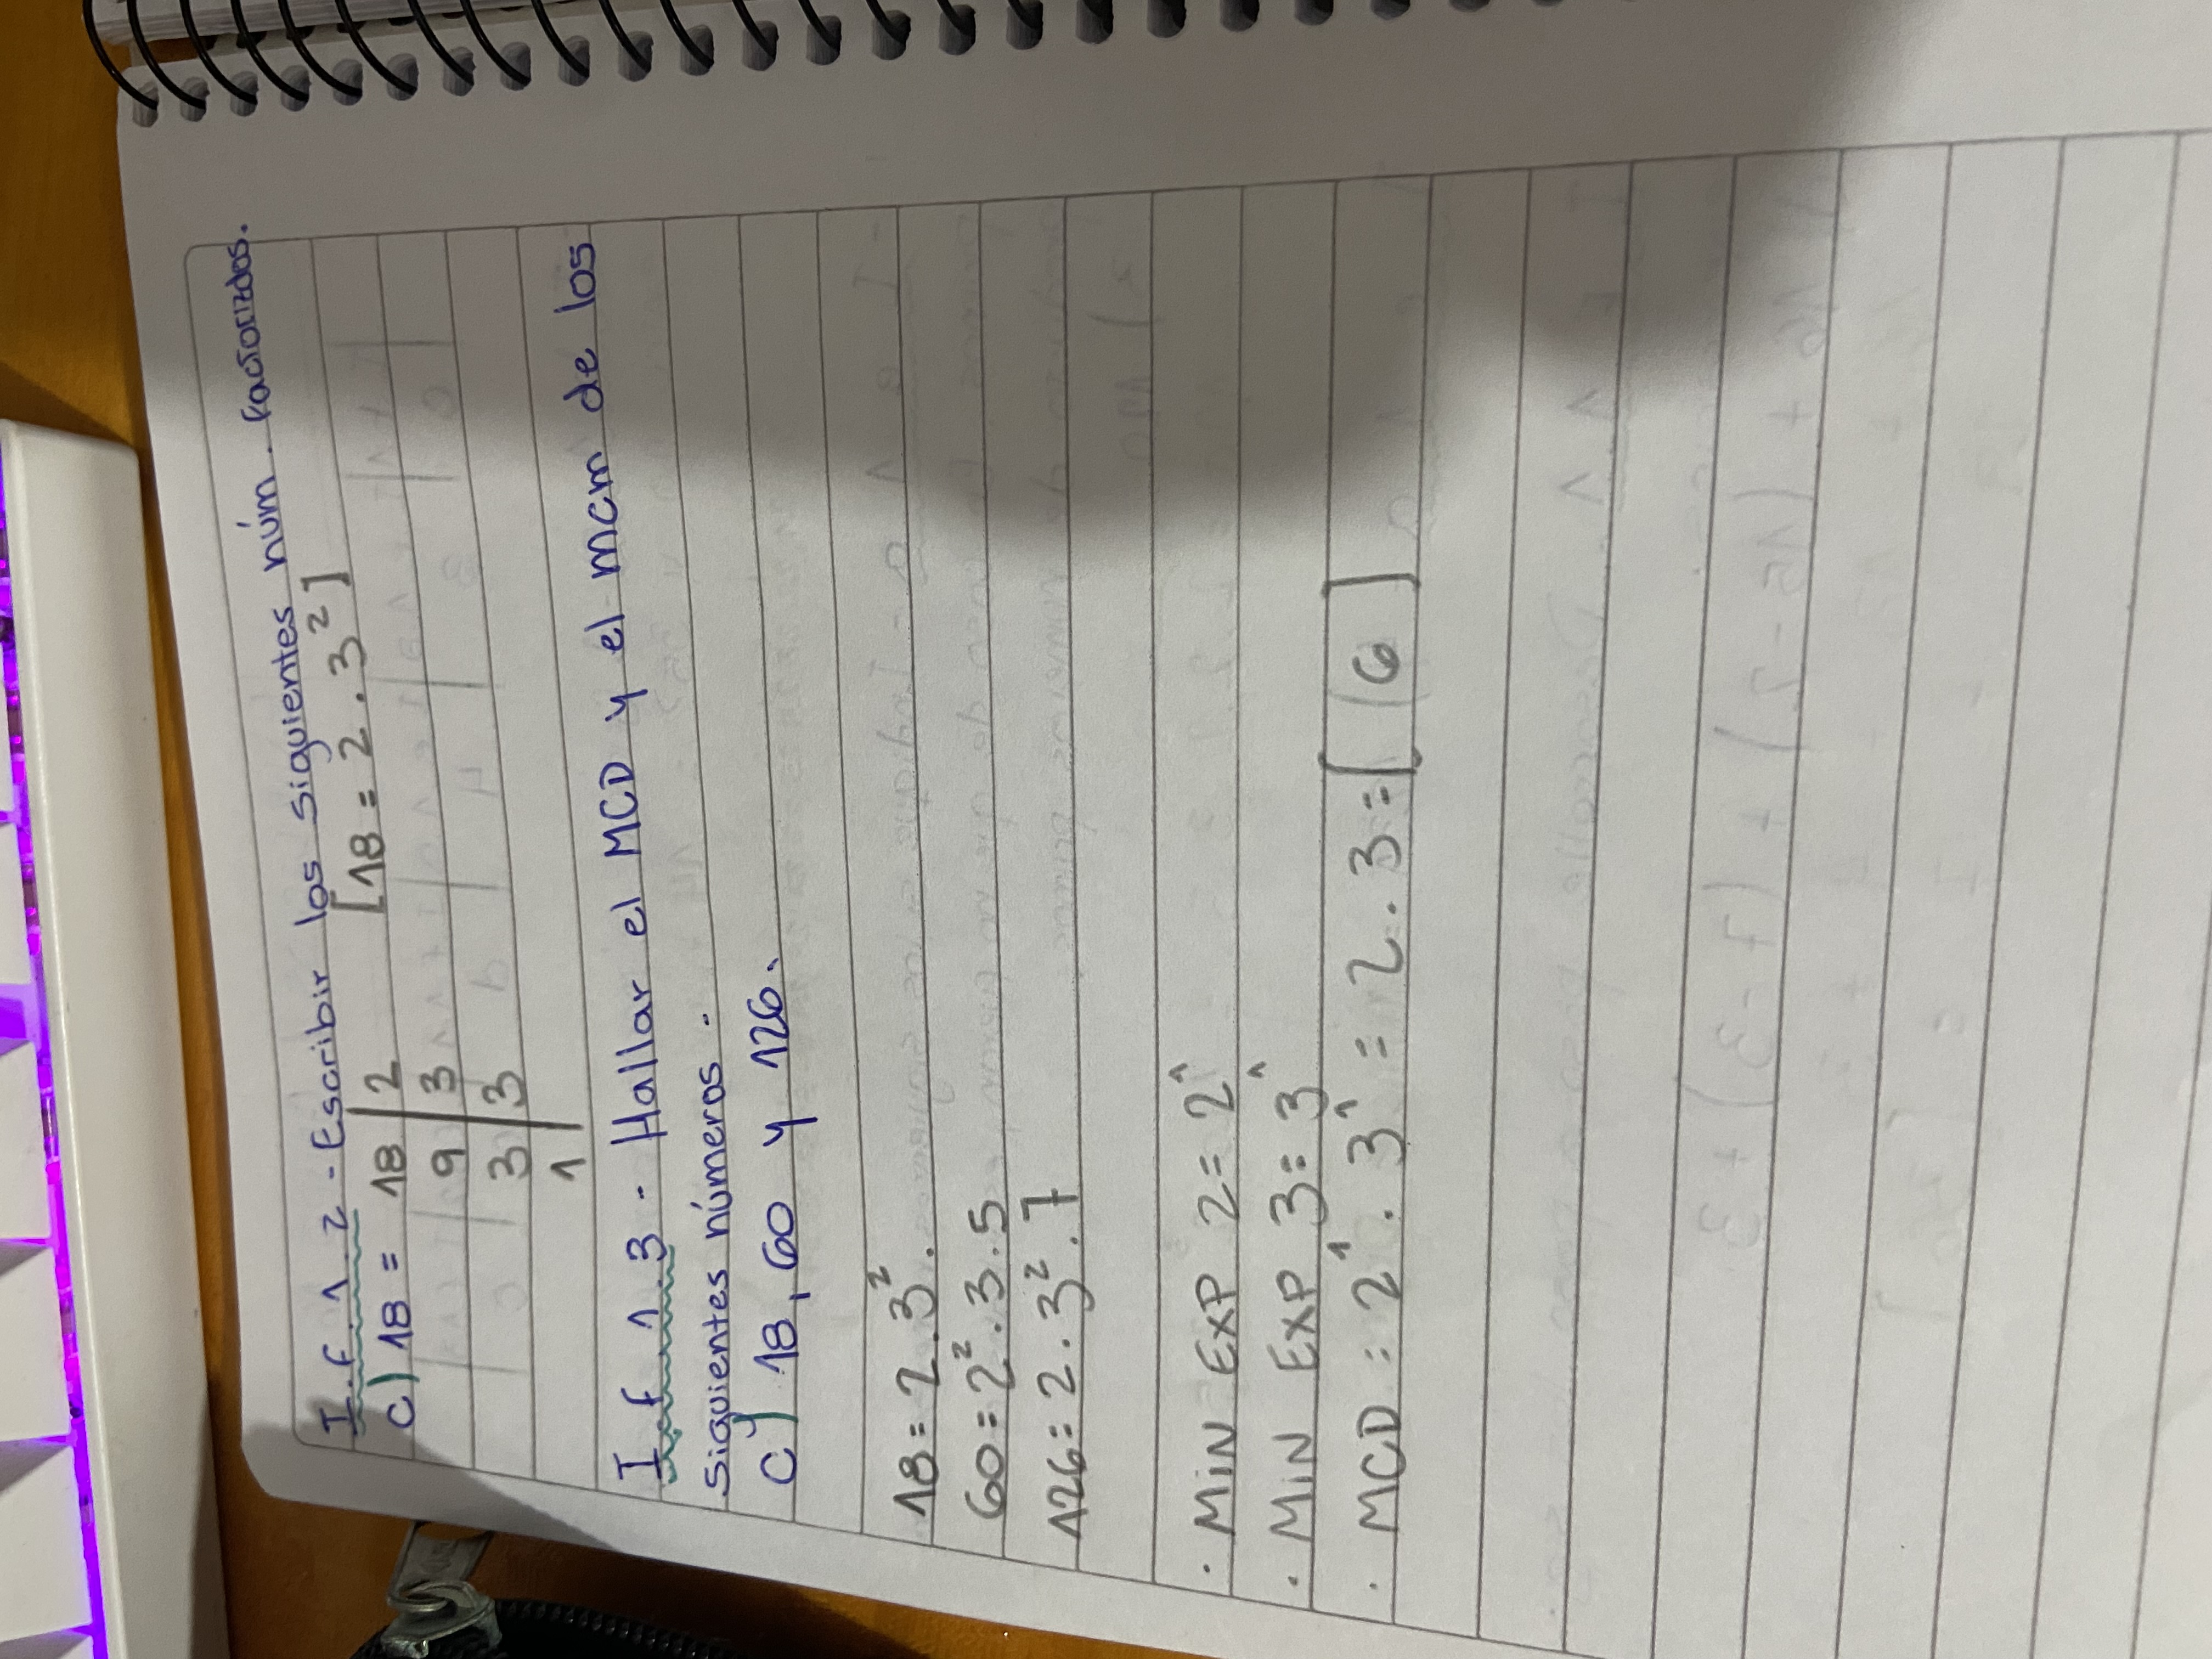 I.f.1.2 - Escribir los siguientes núm. factorizdos.
c) 18 = 18 | 2 [18 = 2 . 3²]
9 | 3
3 | 3
1 |
I.f.1.3 - Hallar el MCD y el mcm de los
siguientes números.
c) 18, 60 y 126.
18 = 2 . 3² .
60 = 2² . 3 . 5
126 = 2 . 3² . 7
. MiN EXP 2 = 2¹
. MiN EXP 3 = 3¹
. MCD : 2¹ . 3¹ = 2 . 3 = [ 6 ]